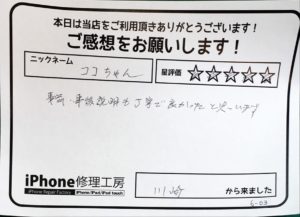 本日は当店をご利用頂きありがとうございます！
ご感想をお願いします！
ニックネーム
ココちゃん
星評価
☆☆☆☆☆
事前・事後説明も丁寧で良かったと思います
iPhone修理工房
iPhone Repair Factory
iPhone/iPad/iPod touch
川崎
から来ました